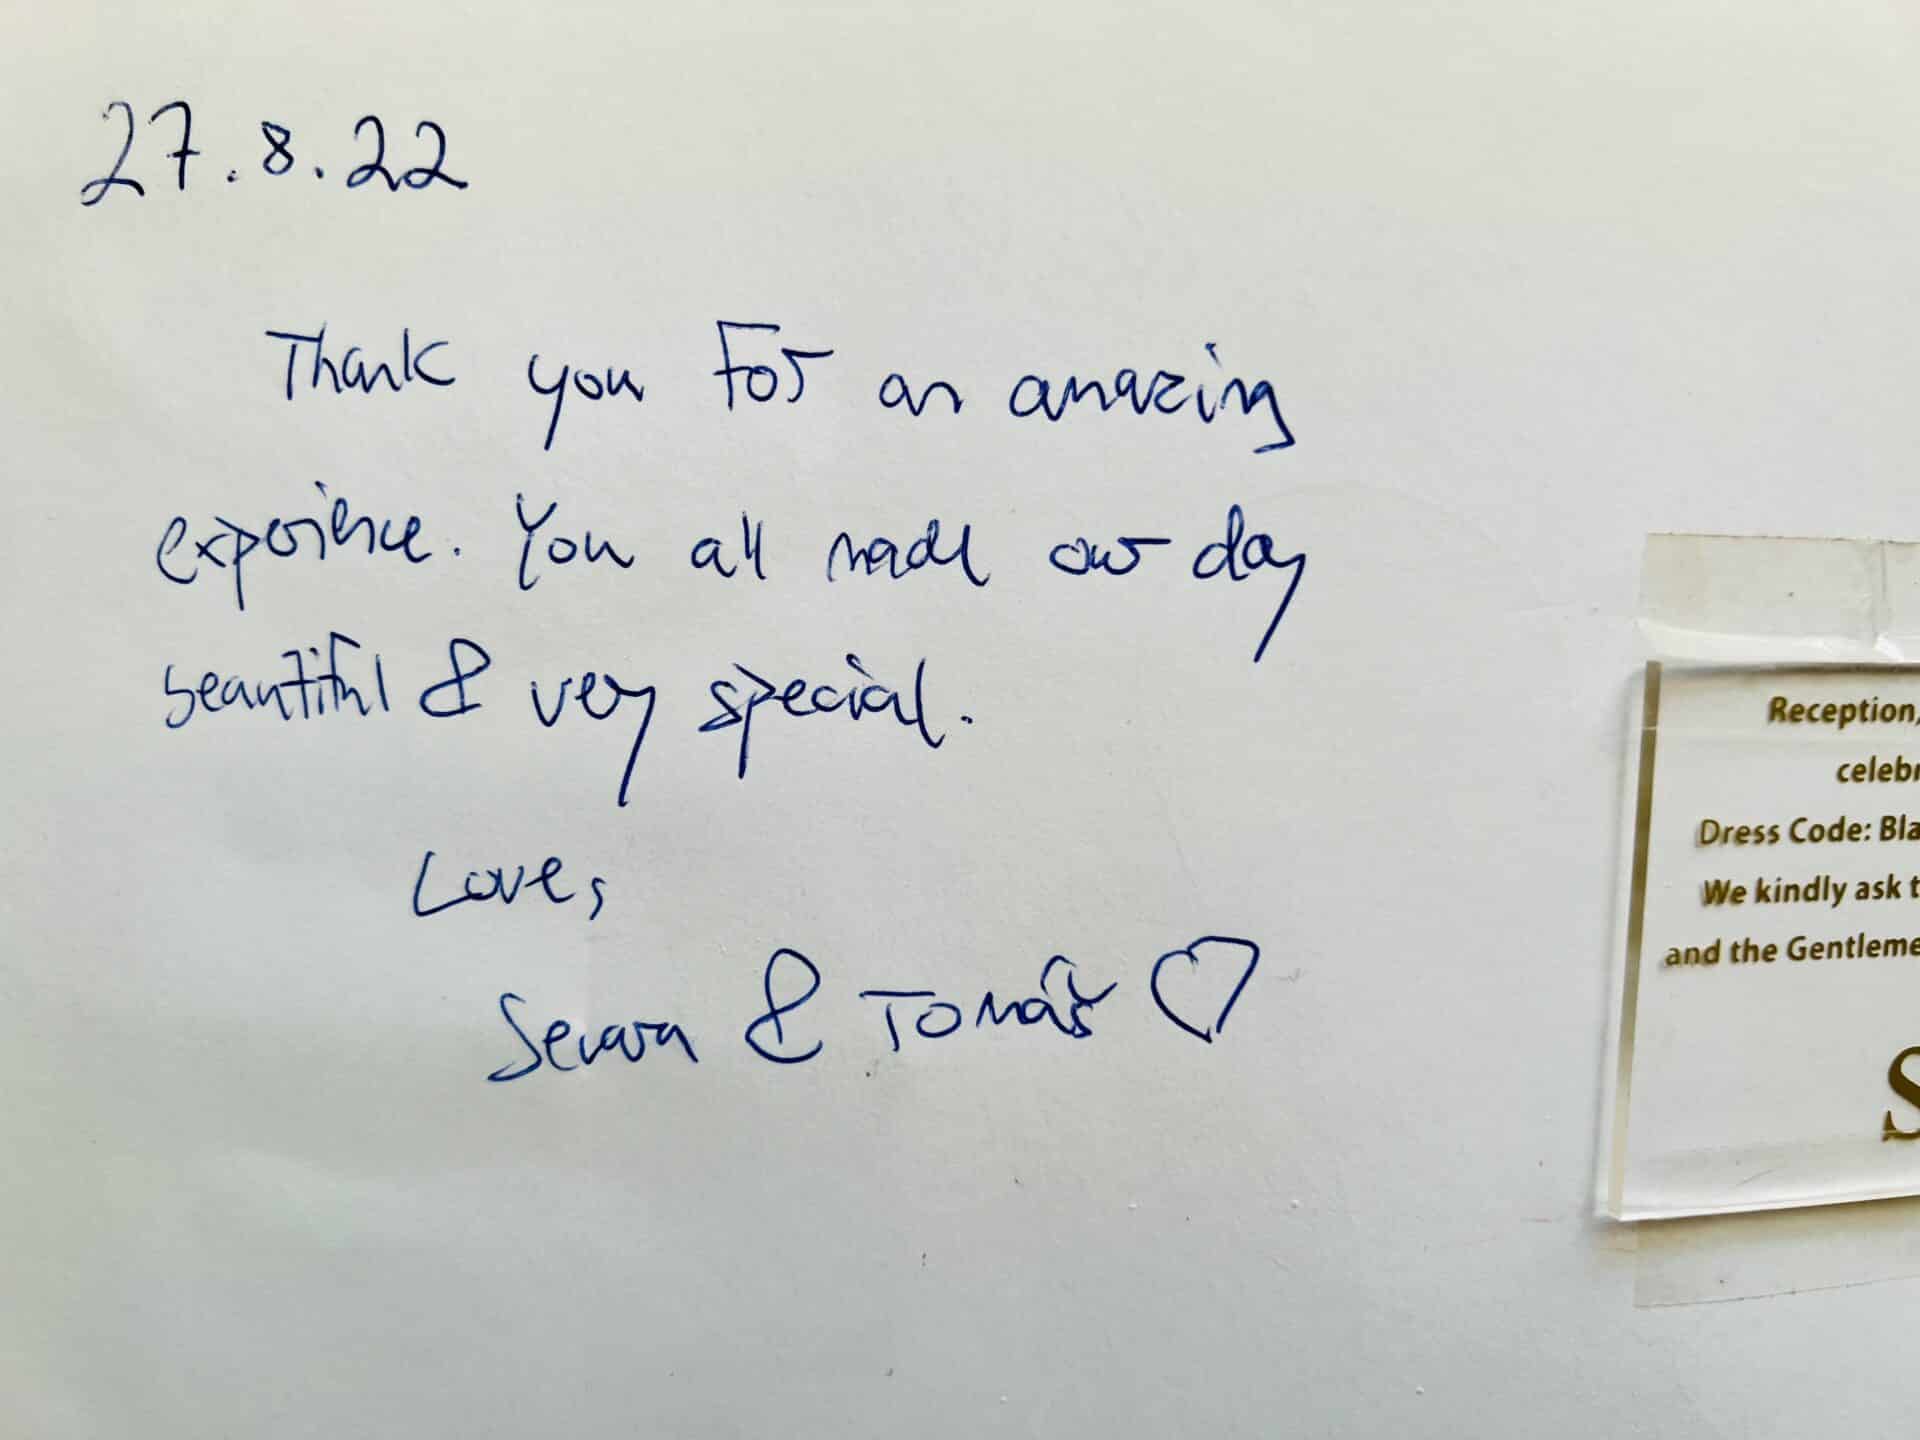 27.8.22
Thank you For an amazing
experience. You all made our day
beautiful & very special.
Love,
& Tomáš ♡
Reception,
celebr
Dress Code: Bla
We kindly ask t
and the Gentleme
S